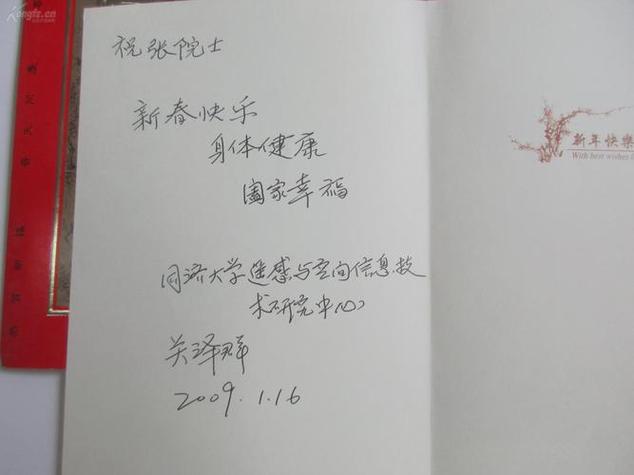 祝张院士
新春快乐
身体健康
阖家幸福
同济大学遥感与空间信息技
术研究中心
关泽群
2009.1.16
新年快樂
With best wishes